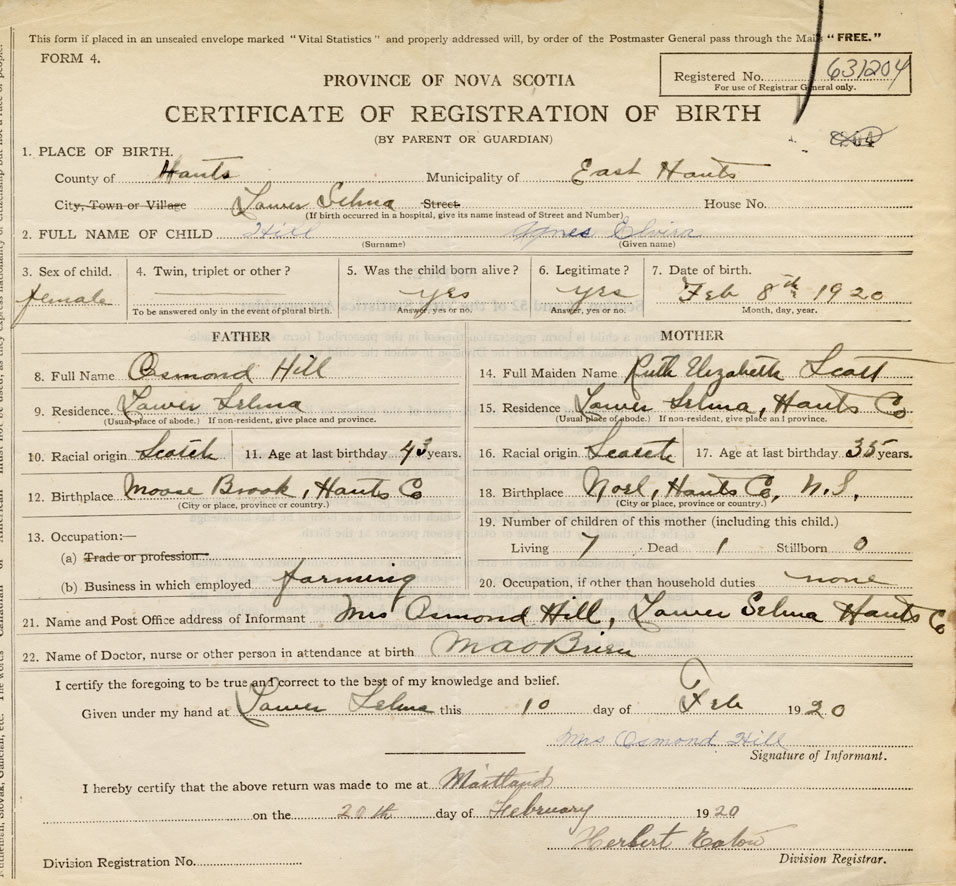 This form if placed in an unsealed envelope marked "Vital Statistics" and properly addressed will, by order of the Postmaster General pass through the Mails "FREE."
FORM 4.
Registered No. 631204
For use of Registrar General only.
PROVINCE OF NOVA SCOTIA
CERTIFICATE OF REGISTRATION OF BIRTH
(BY PARENT OR GUARDIAN)
1. PLACE OF BIRTH.
County of Hants Municipality of East Hants
City, Town or Village Lower Selma Street House No.
(If birth occurred in a hospital, give its name instead of Street and Number)
2. FULL NAME OF CHILD Hill Agnes Elvira
(Surname) (Given name)
3. Sex of child. 4. Twin, triplet or other? 5. Was the child born alive? 6. Legitimate? 7. Date of birth.
female yes yes Feb 8th 1920
To be answered only in the event of plural birth. Answer, yes or no. Answer, yes or no. Month, day, year.
FATHER
8. Full Name Osmond Hill
9. Residence. Lower Selma
(Usual place of abode.) If non-resident, give place and province.
10. Racial origin Scotch 11. Age at last birthday 43 years.
12. Birthplace Moose Brook, Hants Co
(City or place, province or country.)
13. Occupation:—
(a) Trade or profession
(b) Business in which employed farming
MOTHER
14. Full Maiden Name Ruth Elizabeth Scott
15. Residence Lower Selma, Hants Co
(Usual place of abode.) If non-resident, give place and province.
16. Racial origin Scotch 17. Age at last birthday 35 years.
18. Birthplace Noel, Hants Co, N.S.
(City or place, province or country.)
19. Number of children of this mother (including this child.)
Living 7 Dead 1 Stillborn 0
20. Occupation, if other than household duties none
21. Name and Post Office address of Informant Mrs Osmond Hill, Lower Selma Hants Co
22. Name of Doctor, nurse or other person in attendance at birth
I certify the foregoing to be true and correct to the best of my knowledge and belief.
Given under my hand at Lower Selma this 10 day of Feb 1920
Mrs Osmond Hill
Signature of Informant.
I hereby certify that the above return was made to me at Maitland
on the 20th day of February 1920
Herbert Eaton
Division Registration No. Division Registrar.